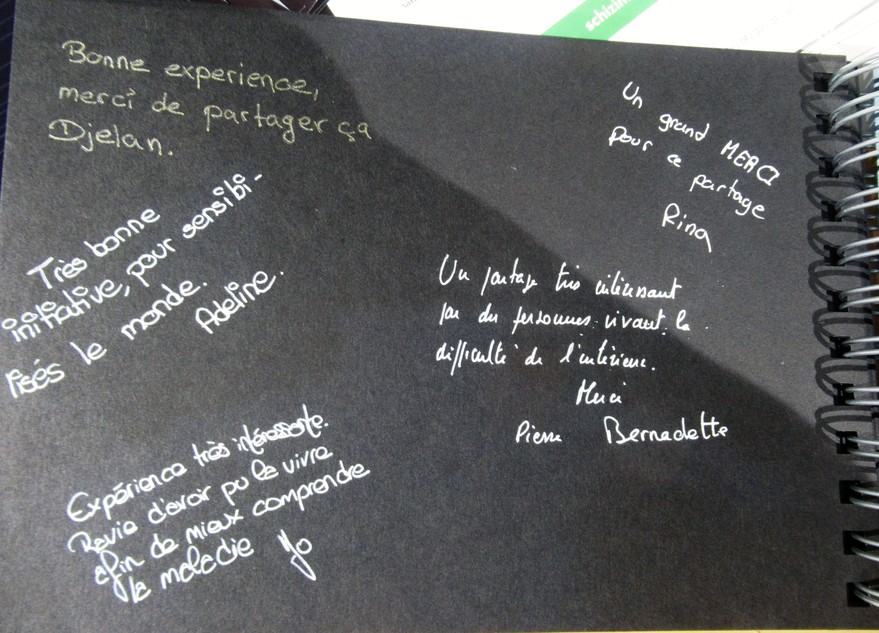 schizin
Bonne experience,
merci de partager ça
Djelan.
Un
grand MERCI
pour ce
partage
Rina
Très bonne
initiative, pour sensibi-
lisés le monde.
Adeline.
Un partage très intéressant
par des personnes vivant la
difficulté de l'intérieur.
Merci
Pierre Bernadette
Expérience très intéressante.
Ravie d'avoir pu la vivre
afin de mieux comprendre
la maladie Yo